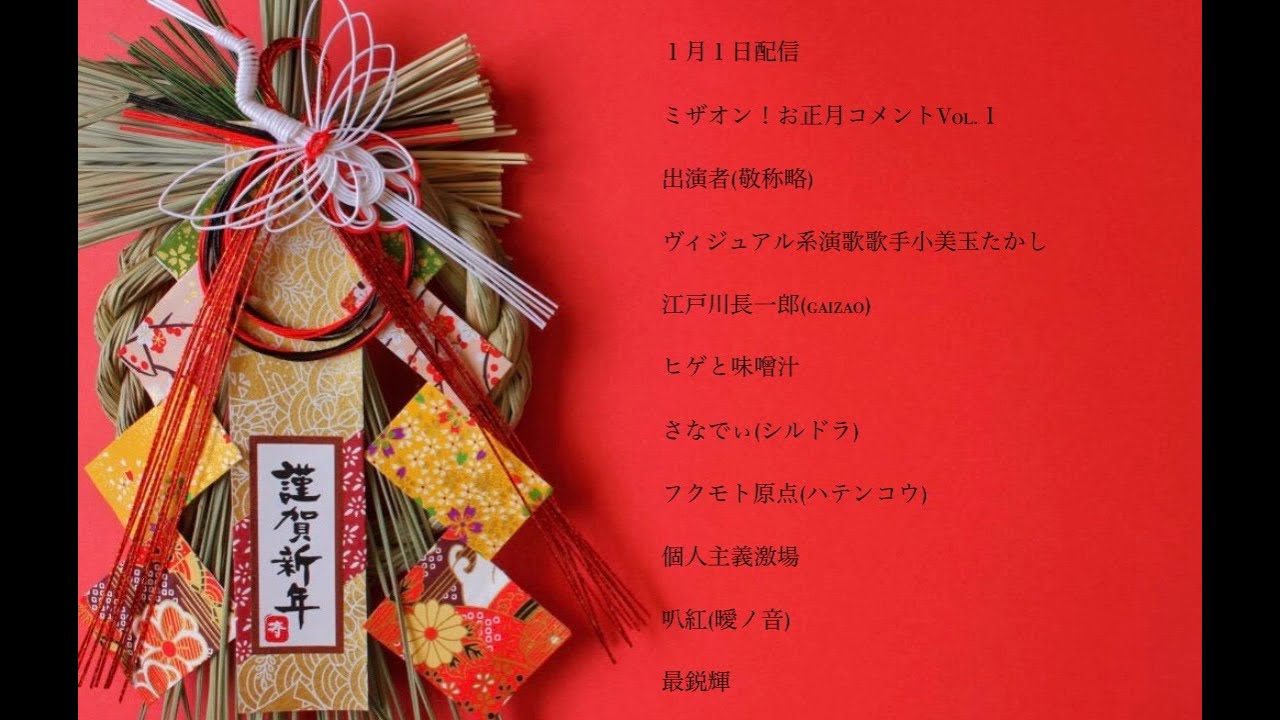 １月１日配信
ミザオン！お正月コメントVOL.１
出演者(敬称略)
ヴィジュアル系演歌歌手小美玉たかし
江戸川長一郎(GAIZAO)
ヒゲと味噌汁
さなでぃ(シルドラ)
フクモト原点(ハテンコウ)
個人主義激場
叭紅(曖ノ音)
最鋭輝
謹賀新年